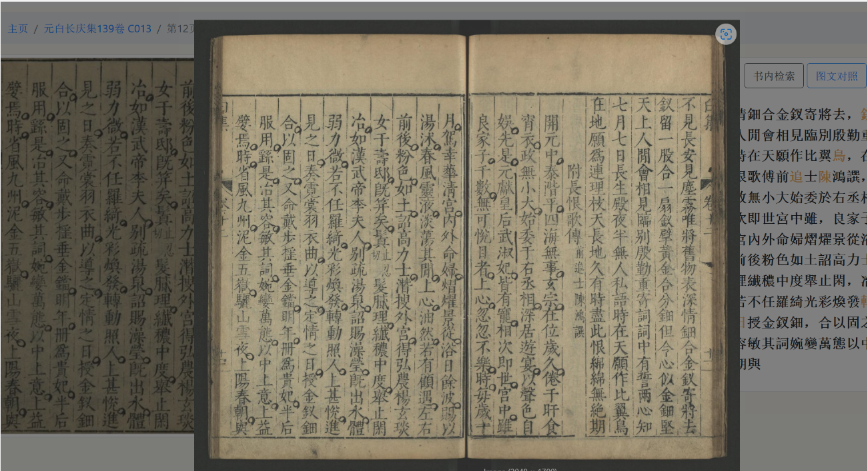 主页 / 元白长庆集139卷 C013 / 第12
不見長安見塵霧唯將舊物表深情鈿合金釵寄將去
釵留一股合一扇釵擘黃金合分鈿但令心似金鈿堅
天上人間會相見臨別殷勤重寄詞詞中有誓兩心知
七月七日長生殿夜半無人私語時在天願作比翼鳥
在地願爲連理枝天長地久有時盡此恨綿綿無絕期
附長恨歌傳 前進士陳鴻譔
開元中泰階平四海無事玄宗在位歲久倦于旰食
宵衣政無小大始委于右丞相深居游宴以聲色自
娛先是元獻皇后武淑妃皆有寵相次即世宮中雖
良家子千數無可悅目者上心忽忽不樂時每歲十
月駕幸華清宮內外命婦熠耀景從浴日餘波賜以
湯沐春風靈液澹蕩其間上心油然若有顧遇左右
前後粉色如土詔高力士潛搜外宮得弘農楊玄琰
女于壽邸既笄矣鬒髮膩理纖穠中度舉止閑
冶如漢武帝李夫人別疏湯泉詔賜澡瑩既出水體
弱力微若不任羅綺光彩煥發轉動照人上甚悅進
見之日奏霓裳羽衣曲以導之定情之夕授金釵鈿
合以固之又命戴步搖垂金璫明年冊爲貴妃半后
服用繇是冶其容敏其詞婉孌萬態以中上意上益
嬖焉時省風九州泥金五嶽驪山雪夜上陽春朝與
书内检索
图文对照
情鈿合金釵寄將去，
人間會相見臨別殷勤
時在天願作比翼鳥，
恨歌傳前追士陳鴻譔，
政無小大始委於右丞
次即世宮中雖，良家子
宮內外命婦熠燿景從
前後粉色如土詔高力士
理纖穠中度舉止閑，
若不任羅綺光彩煥發
授金釵鈿，合以固之
容敏其詞婉孌萬態以中
朝與